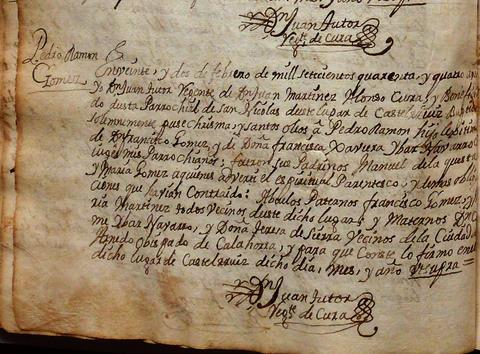 Dn Juan Autor
Vegte de Cura
Pedro Ramon
Gomez
En veinte, y dos de febrero de mill setecientos quarenta, y quatro
Yo Dn Juan Autor Vegente de Dn Juan Martinez Alonso Cura, y Benefi
do desta Parrochial de San Nicolas deste Lugar de Castelrruiz Baptize
Solemnemente puse Chrisma, y santos olios à Pedro Ramon hijo lexitimo
de Dn francisco Gomez y de Doña francisca Xaviera Ybar
mis Parrochianos; fueron sus Padrinos Manuel de la questa
y Maria Gomez aquienes adverti el espiritual Parentesco, y demas oblig
ciones que havian Contraido: Abuelos Paternos francisco Gomez, y
ria Martinez todos Vecinos deste dicho lugar, y Maternos Dn
me Ybar Navarro, y Doña Teresa de Sierra Vecinos de la Ciudad
Arnedo Obispado de Calahorra, y para que Conste lo firmo en
dicho lugar de Castelrruiz dicho dia, mes, y año Vt supra
Dn Juan Autor
Vegte de Cura